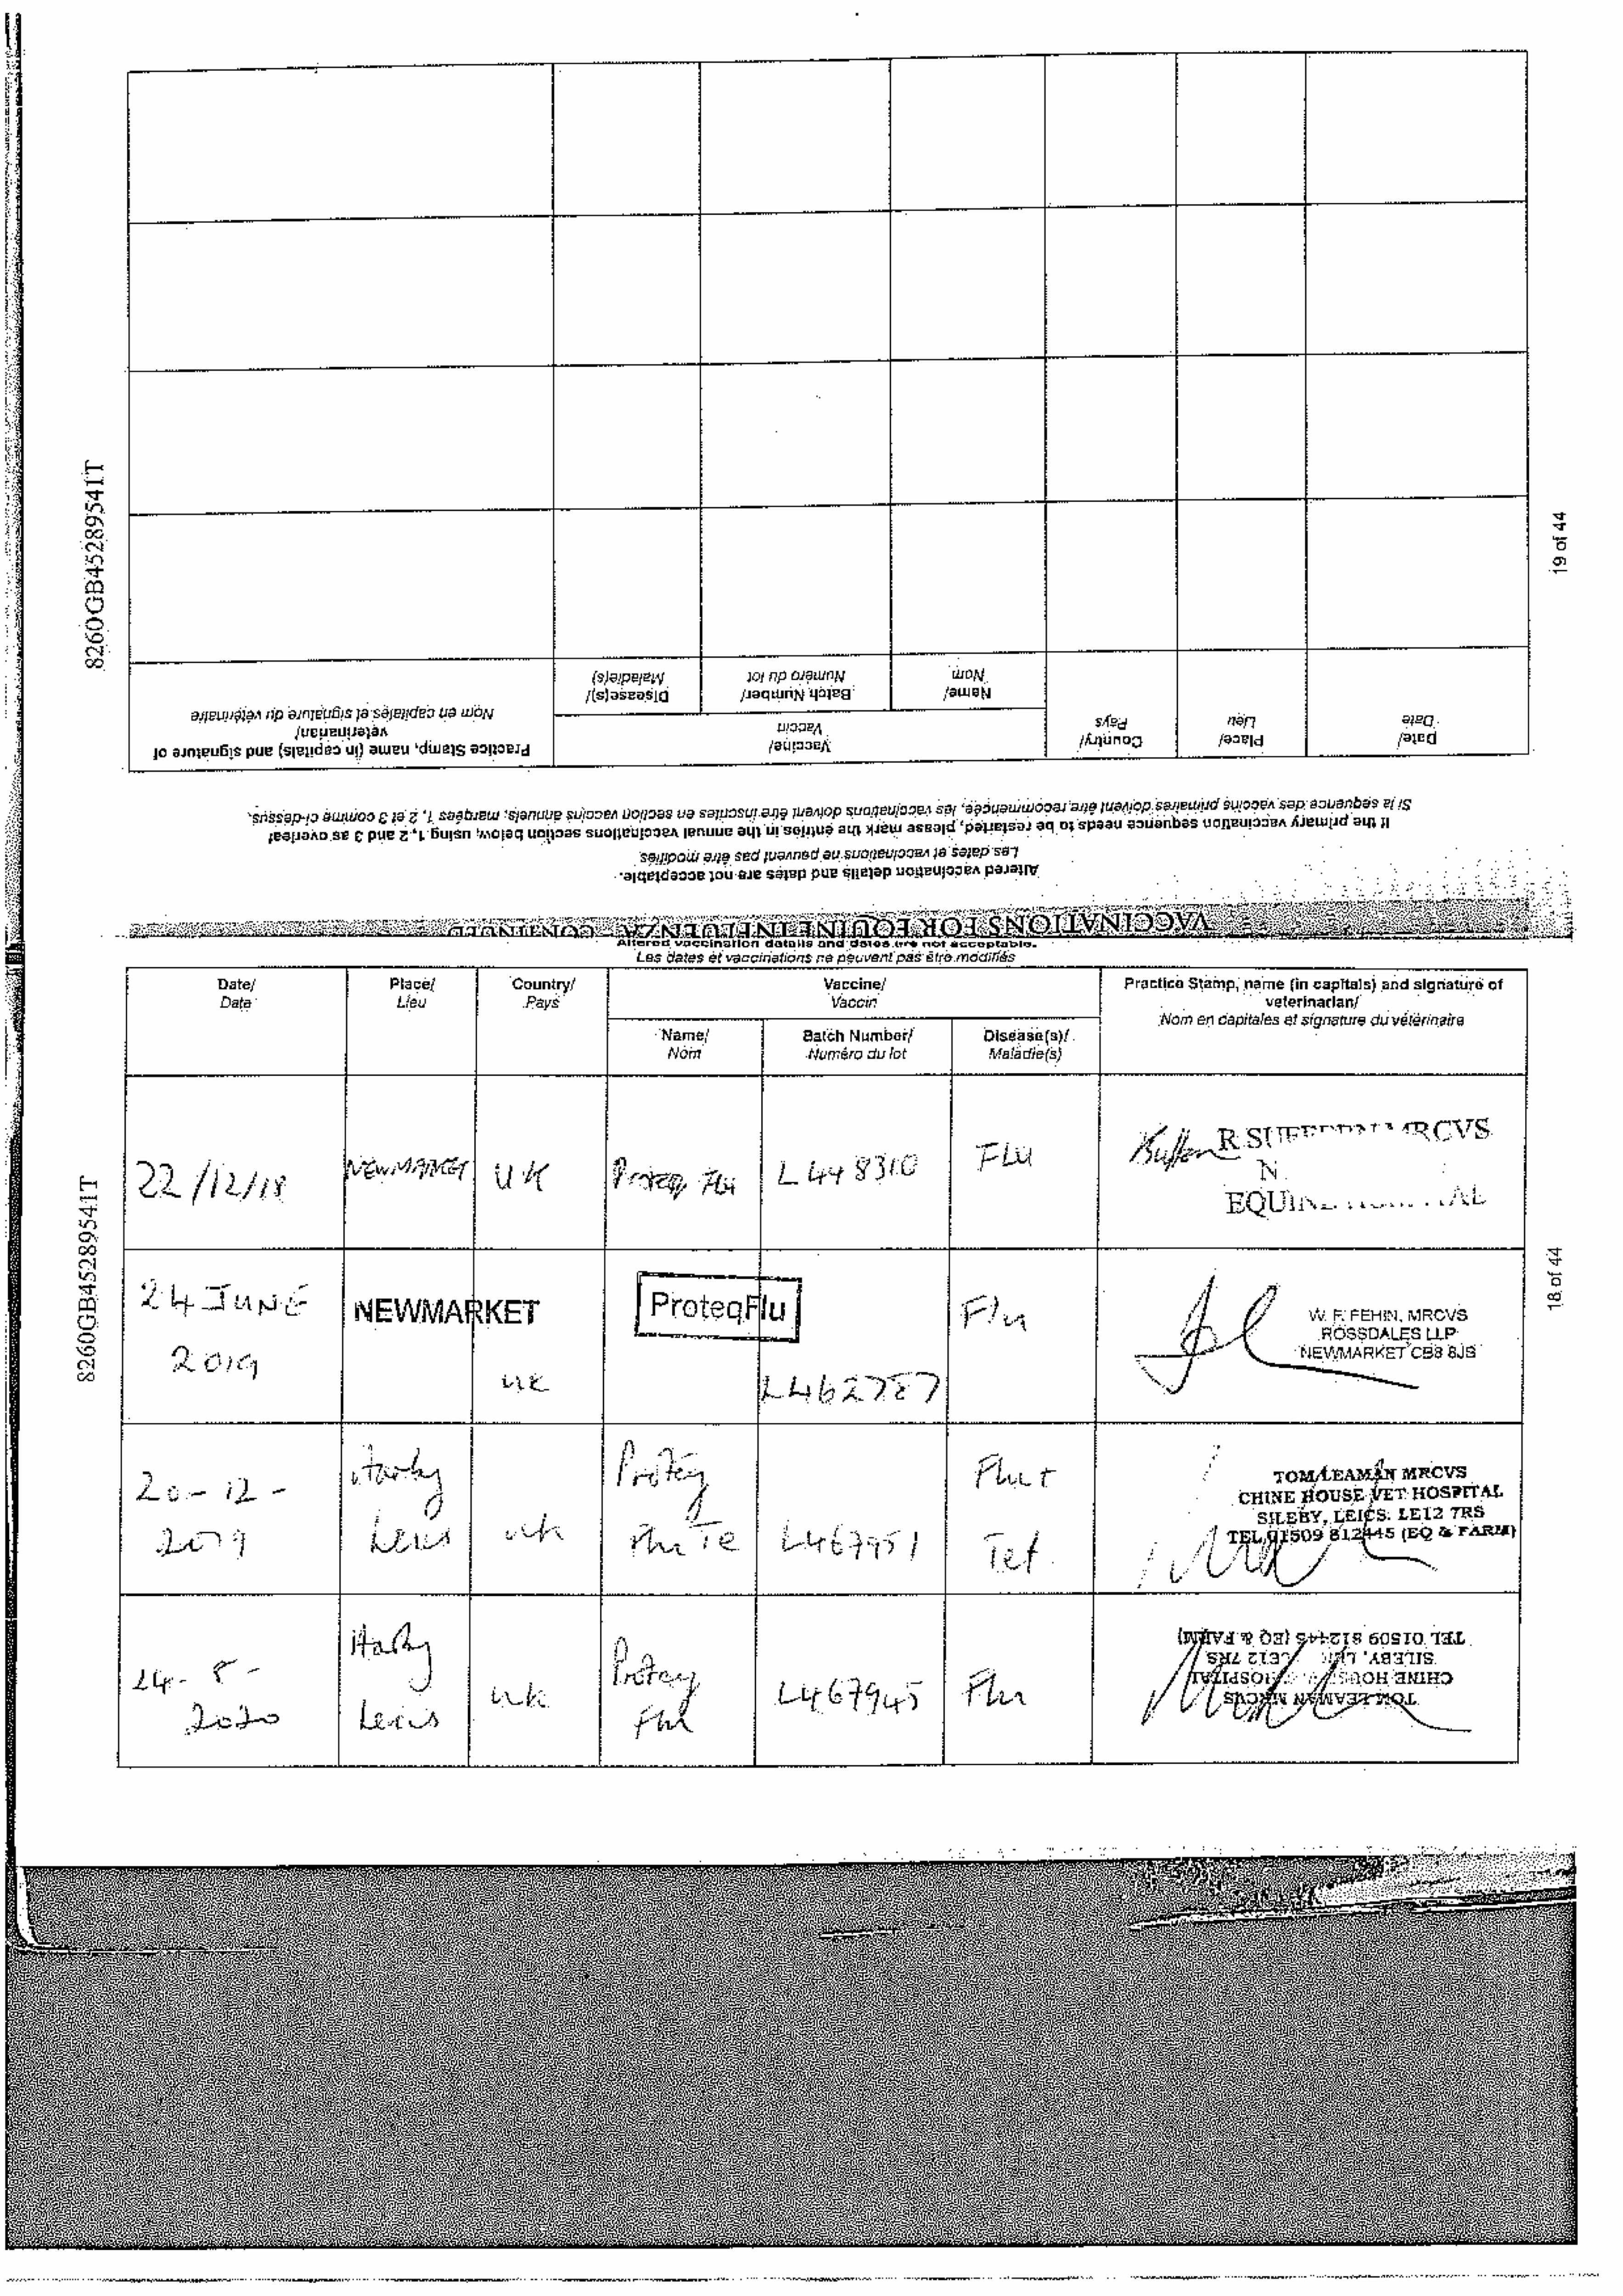 8260GB4528954IT
19 of 44
Practice Stamp, name (in capitals) and signature of
veterinarian/
Nom en capitales et signature du vétérinaire
Vaccine/
Vaccin
Disease(s)/
Maladie(s)
Batch Number/
Numéro du lot
Name/
Nom
Country/
Pays
Place/
Lieu
Date/
Date
Si la séquence des vaccins primaires doivent être recommencée, les vaccinations doivent être inscrites en section vaccins annuels, marquées 1, 2 et 3 comme ci-dessus.
If the primary vaccination sequence needs to be restarted, please mark the entries in the annual vaccinations section below, using 1, 2 and 3 as overleaf
Les dates et vaccinations ne peuvent pas être modifiés.
Altered vaccination details and dates are not acceptable.
VACCINATIONS FOR EQUINE INFLUENZA - CONTINUED
Altered vaccination details and dates are not acceptable.
Les dates et vaccinations ne peuvent pas être modifiés
8260GB4528954IT
18 of 44
Date/
Date
Place/
Lieu
Country/
Pays
Vaccine/
Vaccin
Name/
Nom
Batch Number/
Numéro du lot
Disease(s)/
Maladie(s)
Practice Stamp, name (in capitals) and signature of
veterinarian/
Nom en capitales et signature du vétérinaire
22/12/18
NEWMARKET
UK
Proteq Flu
L448310
FLU
R SUFFERN MRCVS
N
EQUINE HOSPITAL
24 JUNE
2019
NEWMARKET
UK
ProteqFlu
L462787
Flu
W. F. FEHIN, MRCVS
ROSSDALES LLP
NEWMARKET CB8 8JS
20-12-
2019
Harby
Leics
uk
Proteq
Flu Te
L467951
Flu +
Tet.
TOM LEAMAN MRCVS
CHINE HOUSE VET HOSPITAL
SILEBY, LEICS. LE12 7RS
TEL 01509 812445 (EQ & FARM)
24-8-
2020
Harby
Leics
uk
Proteq
Flu
L467945
Flu
TOM LEAMAN MRCVS
CHINE HOUSE HOSPITAL
SILEBY, LE12 7RS
TEL 01509 812445 (EQ & FARM)